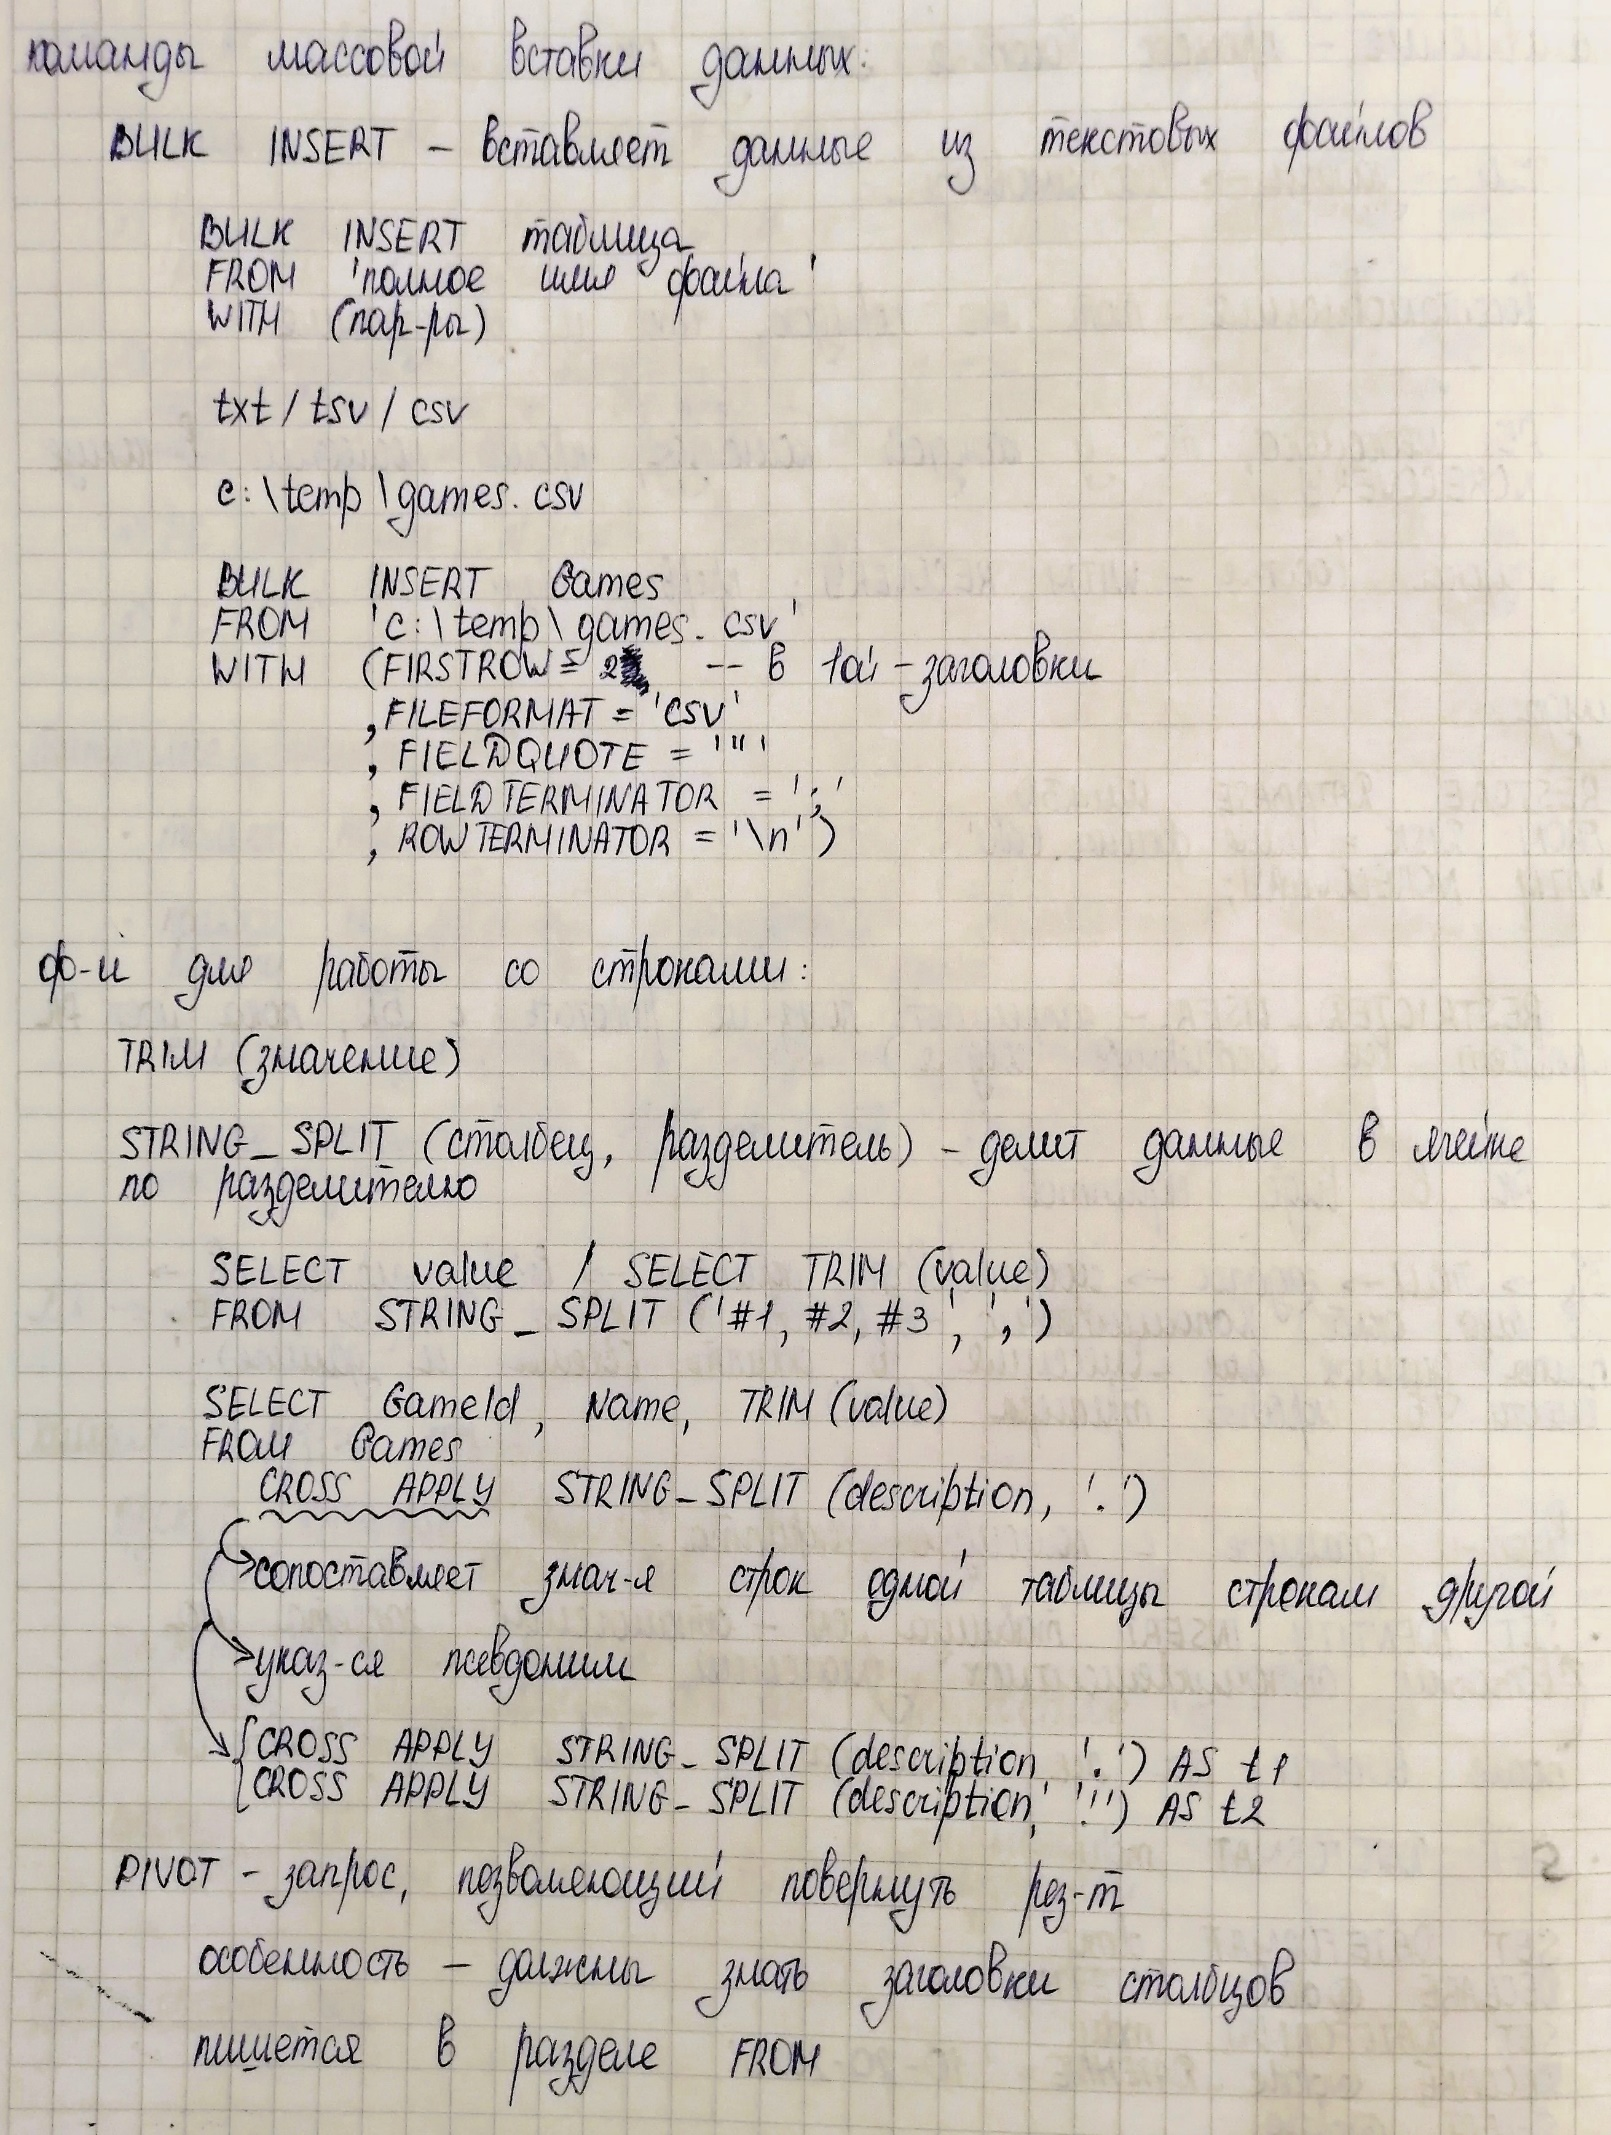 команды массовой вставки данных:
BULK INSERT – вставляет данные из текстовых файлов
BULK INSERT таблица
FROM 'полное имя файла'
WITH (пар-ры)
txt / tsv / csv
c:\temp\games.csv
BULK INSERT Games
FROM 'c:\temp\games.csv'
WITH (FIRSTROW = 2 -- в 1ой - заголовки
, FILEFORMAT = 'CSV'
, FIELDQUOTE = '"'
, FIELDTERMINATOR = ';'
, ROWTERMINATOR = '\n')
ф-и для работы со строками:
TRIM (значение)
STRING_SPLIT (столбец, разделитель) – делит данные в ячейке
по разделителю
SELECT value / SELECT TRIM (value)
FROM STRING_SPLIT ('#1, #2, #3', ',')
SELECT GameId, Name, TRIM (value)
FROM Games
CROSS APPLY STRING_SPLIT (description, '.')
сопоставляет знач-я строк одной таблицы строкам другой
указ-ся псевдоним
CROSS APPLY STRING_SPLIT (description, '.') AS t1
CROSS APPLY STRING_SPLIT (description, '!') AS t2
PIVOT – запрос, позволяющий повернуть рез-т
особенность – должны знать заголовки столбцов
пишется в разделе FROM